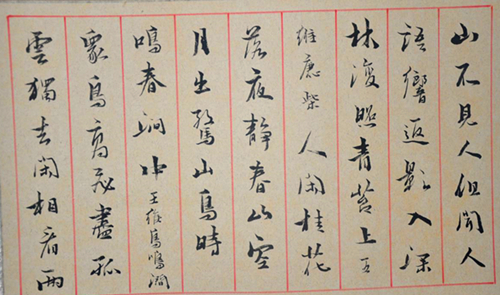 山不見人但聞人
語響返影入深
林復照青苔上王
維鹿柴人閑桂花
落夜靜春山空
月出驚山鳥時
鳴春澗中王維鳥鳴澗
眾鳥高飛盡孤
雲獨去閑相看兩